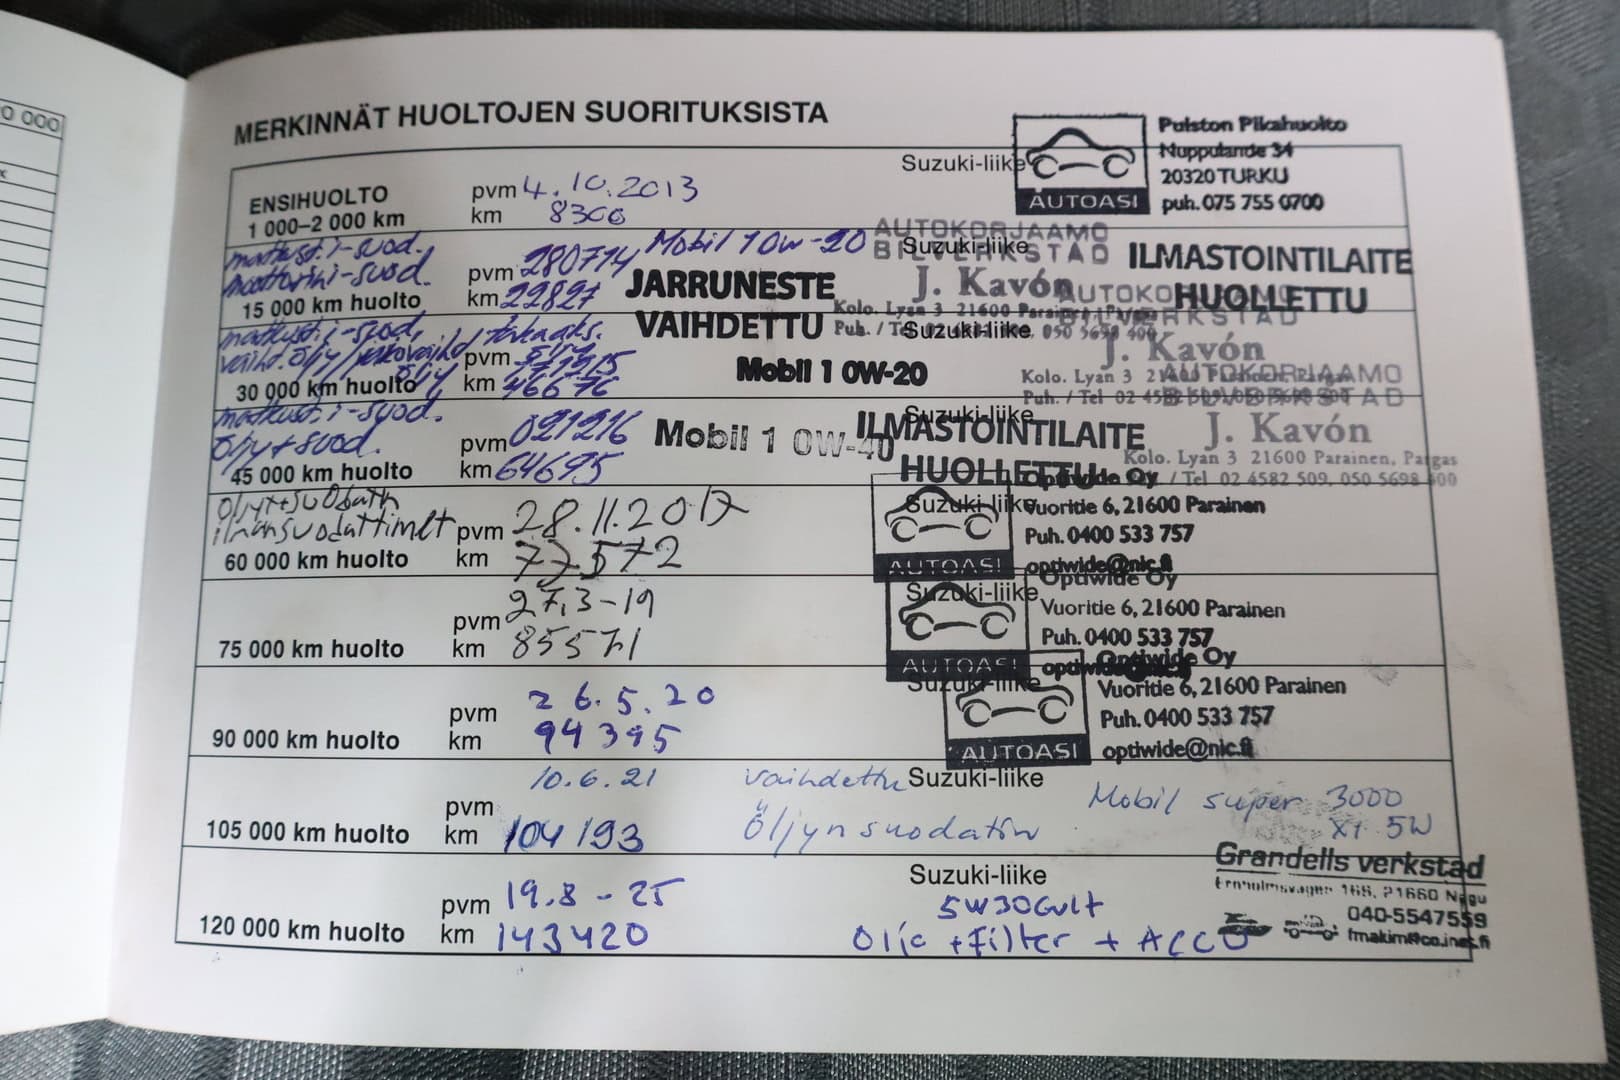 0 000
MERKINNÄT HUOLTOJEN SUORITUKSISTA
AUTOASI
Pulston Pikahuolto
Nuppulantie 34
20320 TURKU
puh. 075 755 0700
ENSIHUOLTO
1 000–2 000 km
pvm 4.10.2013
km 8300
Suzuki-liike
matkust.i-suod.
moottorin i-suod.
15 000 km huolto
pvm 280714
km 22827
Mobil 1 0w-20
JARRUNESTE
VAIHDETTU
Suzuki-liike
AUTOKORJAAMO
BILVERKSTAD
J. Kavón
Kolo. Lyan 3 21600 Parainen, Pargas
ILMASTOINTILAITE
HUOLLETTU
matkust.i-suod,
30 000 km huolto
pvm
km 46676
Mobil 1 0W-20
Suzuki-liike
AUTOKORJAAMO
BILVERKSTAD
J. Kavón
Kolo. Lyan 3
Puh. / Tel
matkust. i-suod.
Öljy+suod.
45 000 km huolto
pvm 021216
km 64695
Mobil 1 0W-40
Suzuki-liike
ILMASTOINTILAITE
HUOLLETTU
AUTOKORJAAMO
BILVERKSTAD
J. Kavón
Kolo. Lyan 3 21600 Parainen, Pargas
/ Tel 02 4582 509, 050 5698 400
60 000 km huolto
pvm 28.11.2017
km 77572
Suzuki-liike
AUTOASI
Optiwide Oy
Vuoritie 6, 21600 Parainen
Puh. 0400 533 757
optiwide@nic.fi
75 000 km huolto
pvm 27.3-19
km 85571
Suzuki-liike
AUTOASI
Optiwide Oy
Vuoritie 6, 21600 Parainen
Puh. 0400 533 757
90 000 km huolto
pvm 26.5.20
km 94395
Suzuki-liike
AUTOASI
Optiwide Oy
Vuoritie 6, 21600 Parainen
Puh. 0400 533 757
optiwide@nic.fi
105 000 km huolto
pvm 10.6.21
km 104193
vaihdettu
Öljynsuodatin
Suzuki-liike
Mobil super 3000
X1 5W
120 000 km huolto
pvm 19.8-25
km 143420
Suzuki-liike
5W30Gult
Olja +Filter + ACCU
Grandells verkstad
166, 21660 Nagu
040-5547559